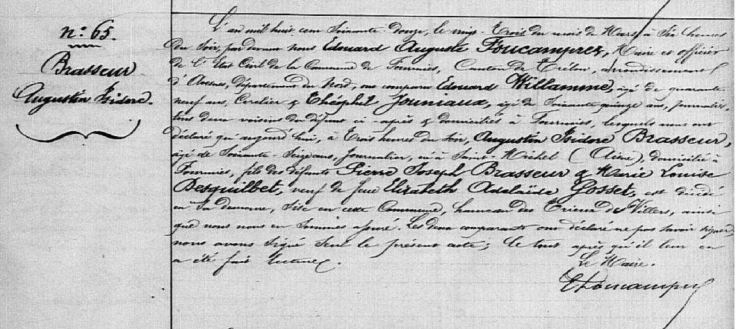 n: 65.
Brasseur
Augustin Isidore.
L'an mil huit cent soixante douze, le vingt-trois du mois de Mars à six heures
du soir, par devant nous Edouard Auguste Foucamprez, Maire et officier
de l'Etat Civil de la Commune de Fourmies, Canton de Trélon, arrondissement
d'Avesnes, département du Nord, ont comparu Edouard Willamme, âgé de quarante
neuf ans, & Théophile Jouniaux, âgé de soixante quinze ans, journalier,
tous deux voisins du défunt ci-après & domiciliés à Fourmies, lesquels nous ont
déclaré qu'aujourd'hui, à trois heures du soir, Augustin Isidore Brasseur,
âgé de soixante-seize ans, journalier, né à Saint-Michel (Aisne), domicilié à
Fourmies, fils des défunts Pierre Joseph Brasseur & Marie Louise
Besquilbet, veuf de feue Elizabeth Adelaïde Gosset, est décédé
en sa demeure, sise en cette Commune, hameau des Trieux de Villers, ainsi
que nous nous en sommes assuré. Les deux comparants ont déclaré ne pas savoir signer,
nous avons signé seul le présent acte; le tout après qu'il leur en
a été fait lecture.
Le Maire.